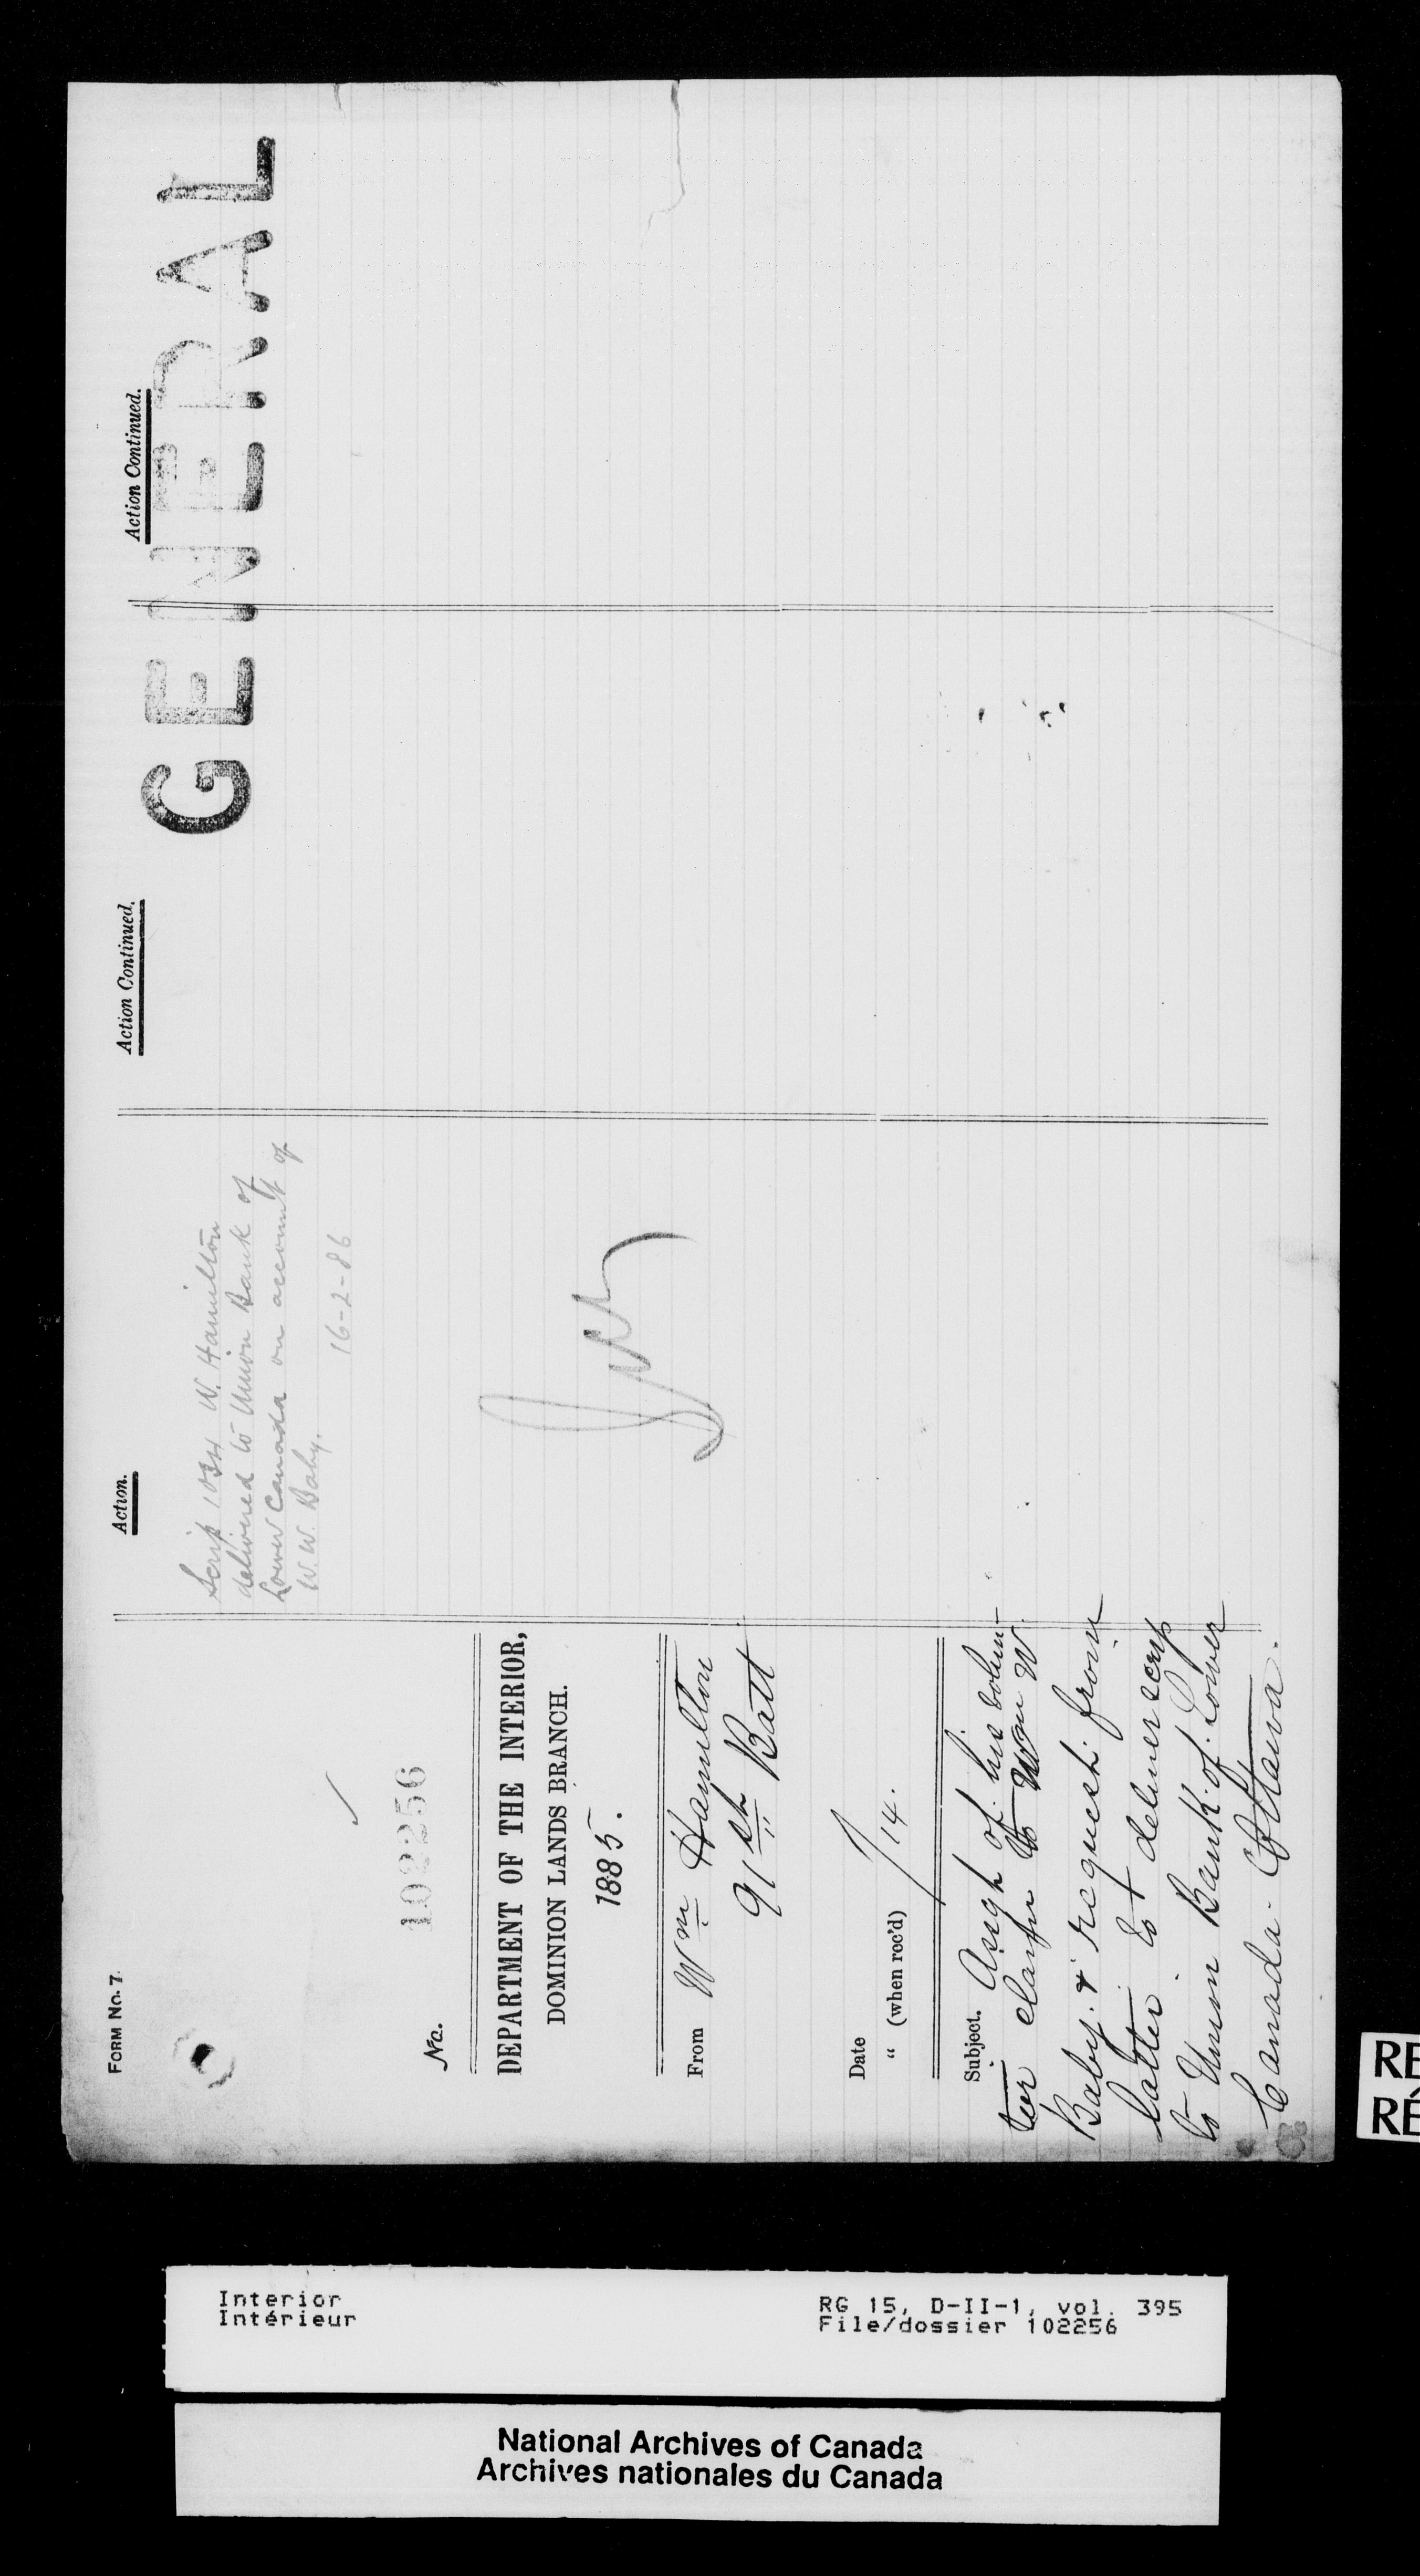 FORM No. 7.
No. 102256
DEPARTMENT OF THE INTERIOR,
DOMINION LANDS BRANCH.
1885.
From Wm Hamilton
91st Batt
Date
" (when rec'd) /14.
Subject. Assgt of his volun-
teer claim to Wm W.
Baby. & request from
latter to deliver scrip
to Union Bank of Lower
Canada. Ottawa.
Action.
Scrip 1034 W. Hamilton
delivered to Union Bank of
Lower Canada on account of
W. W. Baby.
16-2-86
Action Continued.
Action Continued.
GENERAL
RE
RÉ
Interior
Intérieur
RG 15, D-II-1, vol. 395
File/dossier 102256
National Archives of Canada
Archives nationales du Canada